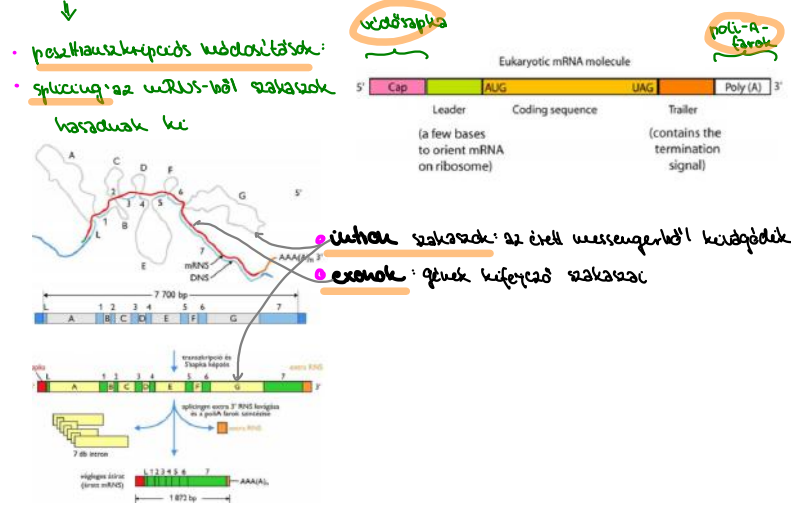 védősapka
poli-A-
farok
• poszttranszkripciós módosítások:
• splicing: az mRNS-ből szakaszok
hasadnak ki
Eukaryotic mRNA molecule
5' Cap AUG UAG Poly (A) 3'
Leader Coding sequence Trailer
(a few bases
to orient mRNA
on ribosome)
(contains the
termination
signal)
A C D F
2 3 4 5 6 G 5'
1 B
L E 7
mRNS
DNS
AAA(A)n 3'
intron szakaszok: az érett messengerből kivágódik
exonok: gének kifejező szakaszai
7 700 bp
L 1 2 3 4 5 6 7
A B C D E F G
transzkripció és
5' sapka képzés
sapka L 1 2 3 4 5 6 7 extra RNS
A B C D E F G 3'
splicing, extra 3' RNS levágása
és a poliA farok szintézise
extra RNS
7 db intron
végleges átirat
(érett mRNS)
L 1 2 3 4 5 6 7
AAA(A)n
1 872 bp